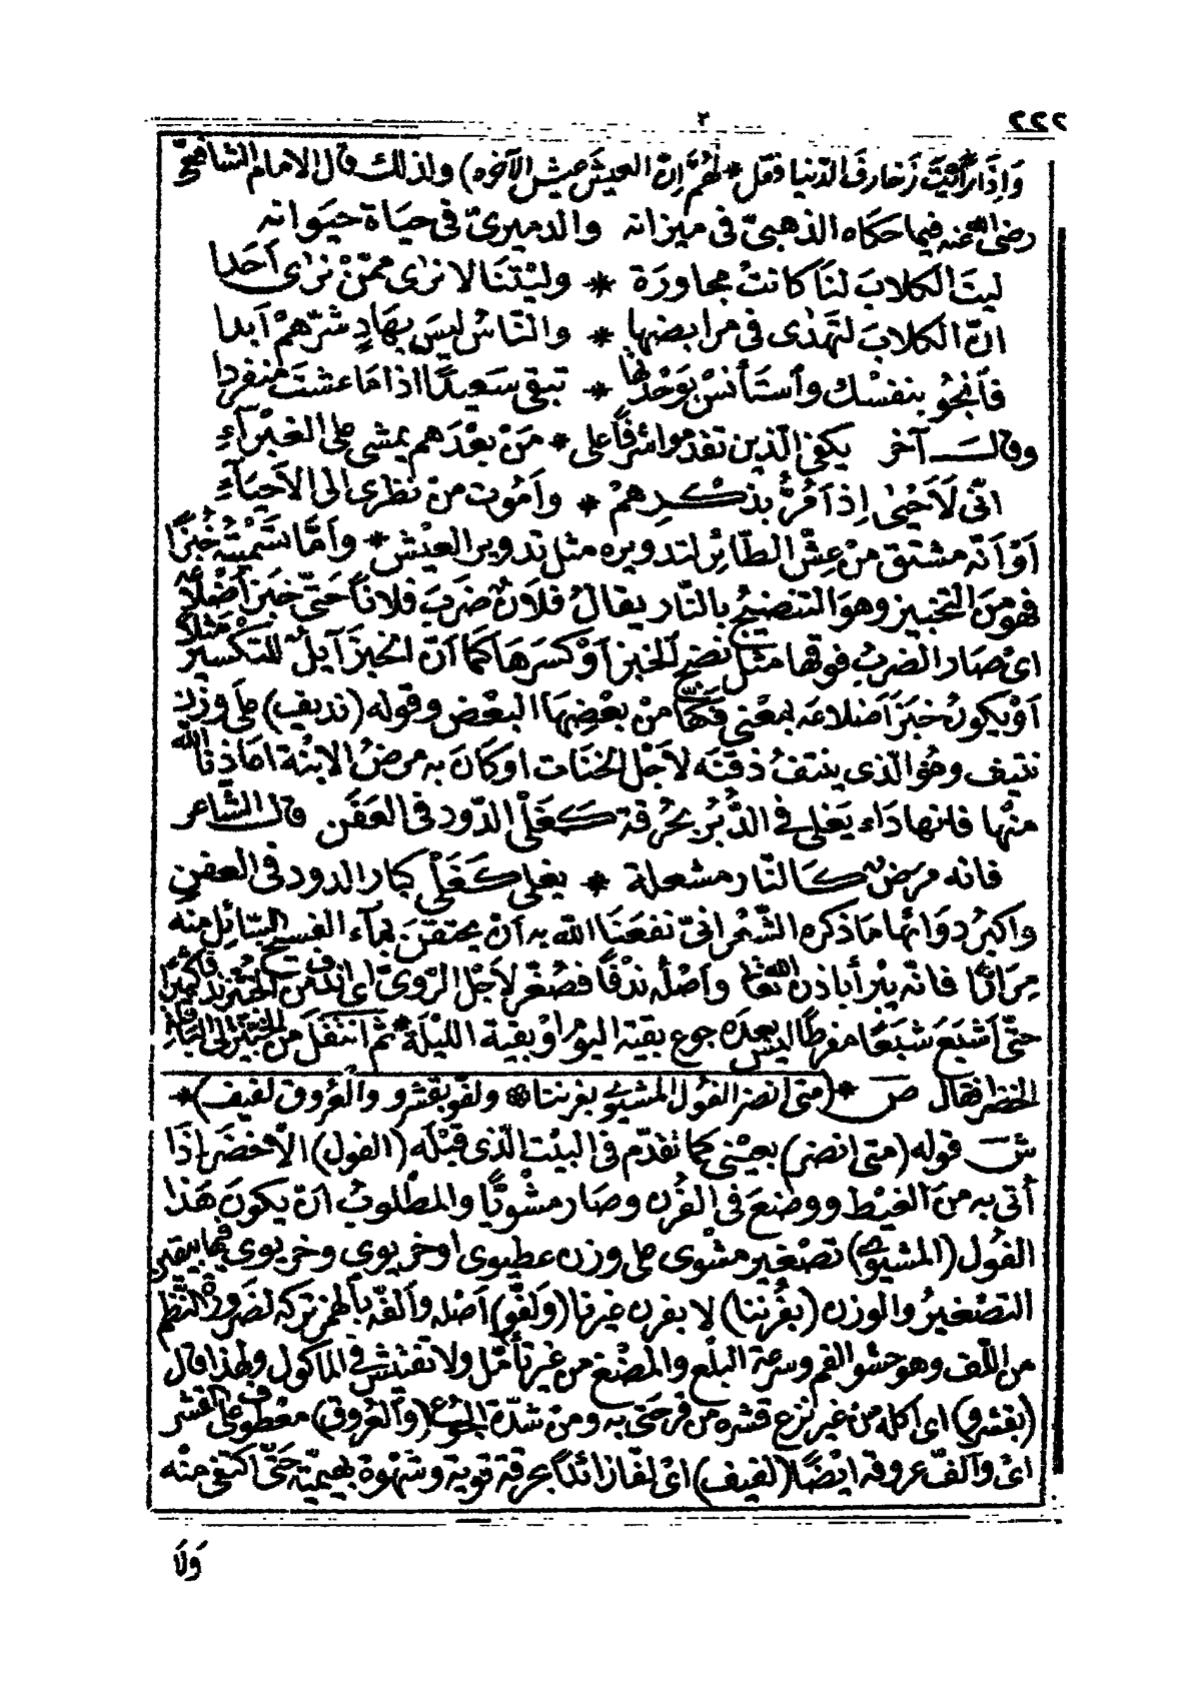 ٢٢٢
٢
وَاِذَا رَأَيْتَ زَخارفَ الدّنيا فقل * لَهُمْ اِنّ العيشَ عيش الآخره) ولذلك قال الامام الشافعىّ
رضى الله عنه فيما حكاه الذهبىّ فى ميزانه والدميرىّ فى حياة حيوانه
ليتَ الكلابَ لنَا كانتْ مجاورَة * وليْتنَا لا نرٰى ممّنْ نرٰى أحَدا
انّ الكلابَ لتهدٰى فى مرابضها * والنّاسُ ليسَ بهَادٍ شرّهمْ أبدا
فأنجُو بنفسْك وأستَأنسْ بوَحْدَتها * تبقى سَعيدًا اذا مَا عشتَ منفردا
وقالــ آخر يكفى الّذين تقدّموا شرفًا على * مَنْ بعْدَهم يمشى على الغبْرآءِ
انّى لَأحْيٰى اِذ أمُرُّ بذكـرهمْ * وأمُوت منْ نظرى الى الأحيَآءِ
أوْ أنّه مشتق منْ عِشّ الطّائِر لتدويره مثل تدوير العيْش * وأمّا تسْميَتُه خُبزًا
فهو منَ التخبيز وهوَ التنضيجُ بالنّار يقالُ فلَانٌ ضَرَبَ فلانًا حَتّى خبَز أضْلَاعَه
اىْ صَار الضربُ فوقها مثل نضج الخبز أوْ كسَرهَا كمَا أنّ الخبز آيلٌ للتكسير مَثلًا
أوْ يكونُ خبزَ أضلاعَه بمعْنى فكّهَا منْ بعْضِهَا البَعْض وقوله (نديف) على وَزْن
نتيف وهُوَ الّذى ينتفُ ذقنَه لأجْل الخنَات او كَانَ به مرضُ الابْنة اعَاذنَا الله
منْها فانها دَاء يَغلى فى الدُّبُر بحُرقة كـغَلْى الدّود فى العَفَن قالــ الشّاعر
فانه مرَضٌ كـالنّار مشعلة * يغلى كـغَلْى كبار الدود فى العفن
واكبرُ دوَائهَا مَا ذكره الشّعرانىّ نفعَنَا الله به أنْ يحتقنَ بمآء الفسيخ السّائِل منْه
مِرَارًا فانّه يبْرأ باذن الله تعَالى وأصْله ندْفًا فصُغّر لأجْل الرّوىّ اى اندف منَ الخبْز
حتّى أشبَعَ شبَعًا مفرطًا ليسَ بعدَه جوع بقية اليوم أوْ بقية الليلة * ثم انتقلَ منَ الخبْز الى
الخضر فقال صــ * (متى انضر الفول المشيوى بفرننا ۞ ولفّو بقشرو والعُروق لفيف) *
شــ قوله (متى انضر) بعيْنى كما تقدّم فى البيْت الّذى قبْلَه (الفول) الأخضَر اذَا
أُتى به منَ الغيْط ووضعَ فى الفُرن وصَار مشْويًّا والمطْلوبُ انْ يكونَ هَذا
الفُول (المشيوى) تصْغير مشْوى على وزن عطيوى او خريوى وخريوى فيها يبقى
التصْغيرُ والوزن (بفُرننا) لا بفرن غيرنا (ولفّو) أصْله وألفّه بالهمز تركه لضرورة النّظم
من اللّف وهو حشو الفم وسرعة البلْع والمضْغ من غير تأمّل ولا تفتيش فى المأكول ولهذا قال
(بقشرو) اى أكله من غير نزع قشره من فرحتى به ومن شدّة الجوع (والعُروق) معْطوف على القشر
اىْ وألفّ عروقه ايْضًا (لفيف) اىْ لفّا زائدًا بحرقة قوية وشهْوة بهيميّة حَتّى اكتفى منْه
وَلَا